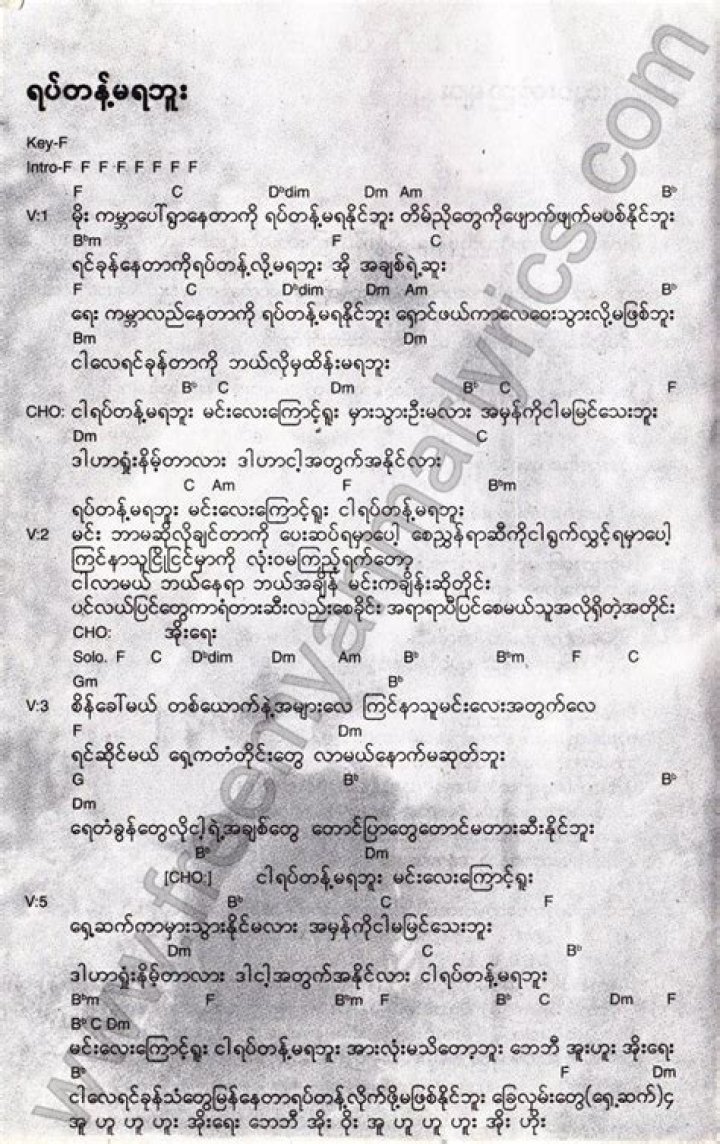 ရပ်တန့်မရဘူး
Key-F
Intro-F F F F F F F F
F C Dᵇdim Dm Am Bᵇ
V:1 မိုး ကမ္ဘာပေါ်ရွာနေတာကို ရပ်တန့်မရနိုင်ဘူး တိမ်ညိုတွေကိုဖျောက်ဖျက်မပစ်နိုင်ဘူး
Bᵇm F C
ရင်ခုန်နေတာကိုရပ်တန့်လို့မရဘူး အို အချစ်ရဲ့ဆူး
F C Dᵇdim Dm Am Bᵇ
ရေး ကမ္ဘာလည်နေတာကို ရပ်တန့်မရနိုင်ဘူး ရှောင်ဖယ်ကာလေဝေးသွားလို့မဖြစ်ဘူး
Bm Dm
ငါလေရင်ခုန်တာကို ဘယ်လိုမှထိန်းမရဘူး
Bᵇ C Dm Bᵇ C F
CHO: ငါရပ်တန့်မရဘူး မင်းလေးကြောင့်ရူး မှားသွားဦးမလား အမှန်ကိုငါမမြင်သေးဘူး
Dm C
ဒါဟာရှုံးနိမ့်တာလား ဒါဟာငါ့အတွက်အနိုင်လား
C Am F Bᵇm
ရပ်တန့်မရဘူး မင်းလေးကြောင့်ရူး ငါရပ်တန့်မရဘူး
V:2 မင်း ဘာမဆိုလိုချင်တာကို ပေးဆပ်ရမှာပေါ့ စေညွှန်ရာဆီကိုငါရွက်လွှင့်ရမှာပေါ့
ကြင်နာသူငြိုငြင်မှာကို လုံးဝမကြည့်ရက်တော့
ငါလာမယ် ဘယ်နေရာ ဘယ်အချိန် မင်းကချိန်းဆိုတိုင်း
ပင်လယ်ပြင်တွေကာရံတားဆီးလည်းစေခိုင်း အရာရာပီပြင်စေမယ်သူအလိုရှိတဲ့အတိုင်း
CHO: အိုးရေး
Solo. F C Dᵇdim Dm Am Bᵇ Bᵇm F C
Gm Bᵇ
V:3 စိန်ခေါ်မယ် တစ်ယောက်နဲ့အများလေ ကြင်နာသူမင်းလေးအတွက်လေ
F Dm
ရင်ဆိုင်မယ် ရှေ့ကတံတိုင်းတွေ လာမယ်နောက်မဆုတ်ဘူး
G Bᵇ Bᵇ
Dm
ရေတံခွန်တွေလိုငါ့ရဲ့အချစ်တွေ တောင်ပြာတွေတောင်မတားဆီးနိုင်ဘူး
Bᵇ Dm
[CHO:] ငါရပ်တန့်မရဘူး မင်းလေးကြောင့်ရူး
V:5 Bᵇ C F
ရှေ့ဆက်ကာမှားသွားနိုင်မလား အမှန်ကိုငါမမြင်သေးဘူး
Dm C Bᵇ
ဒါဟာရှုံးနိမ့်တာလား ဒါငါ့အတွက်အနိုင်လား ငါရပ်တန့်မရဘူး
Bᵇm F Bᵇm F Bᵇ C Dm F
Bᵇ C Dm
မင်းလေးကြောင့်ရူး ငါရပ်တန့်မရဘူး အားလုံးမသိတော့ဘူး ဘေဘီ အူးဟူး အိုးရေး
Bᵇ F Dm
ငါလေရင်ခုန်သံတွေမြန်နေတာရပ်တန့်လိုက်ဖို့မဖြစ်နိုင်ဘူး ခြေလှမ်းတွေ(ရှေ့ဆက်)၄
အူ ဟူ ဟူ ဟူး အိုးရေး ဘေဘီ အိုး ဝိုး အူ ဟူ ဟူ ဟူး အိုး ဟိုး
www.freemyanmarlyrics.com